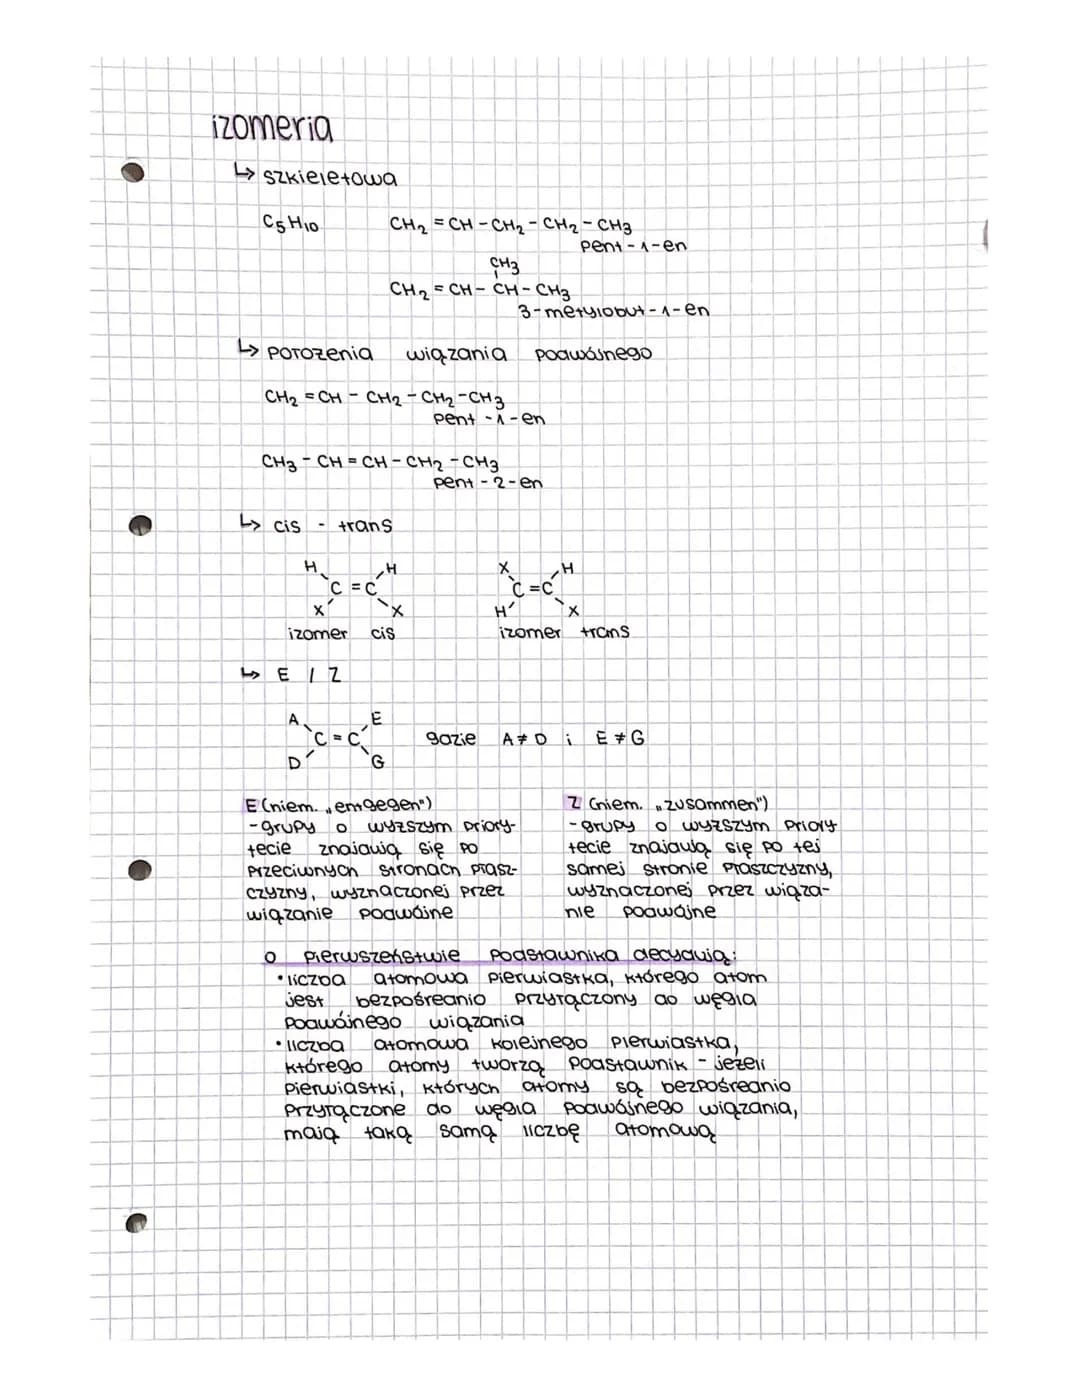 izomeria
↳ szkieletowa
C5H10 CH2 = CH - CH2 - CH2 - CH3
pent - 1 - en
CH3
CH2 = CH - CH - CH3
3 - metylobut - 1 - en
↳ położenia wiązania podwójnego
CH2 = CH - CH2 - CH2 - CH3
pent - 1 - en
CH3 - CH = CH - CH2 - CH3
pent - 2 - en
↳ cis - trans
H H X H
C = C C = C
X X H X
izomer cis izomer trans
↳ E / Z
A E
C = C gdzie A ≠ D i E ≠ G
D G
E (niem. „entgegen")
- grupy o wyższym priory-
tecie znajdują się po
przeciwnych stronach płasz-
czyzny, wyznaczonej przez
wiązanie podwójne
Z (niem. „zusammen")
- grupy o wyższym priory
tecie znajdują się po tej
samej stronie płaszczyzny,
wyznaczonej przez wiąza-
nie podwójne
o pierwszeństwie podstawnika decydują:
• liczba atomowa pierwiastka, którego atom
jest bezpośrednio przyłączony do węgla
podwójnego wiązania
• liczba atomowa kolejnego pierwiastka,
którego atomy tworzą podstawnik - jeżeli
pierwiastki, których atomy są bezpośrednio
przyłączone do węgla podwójnego wiązania,
mają taką samą liczbę atomową